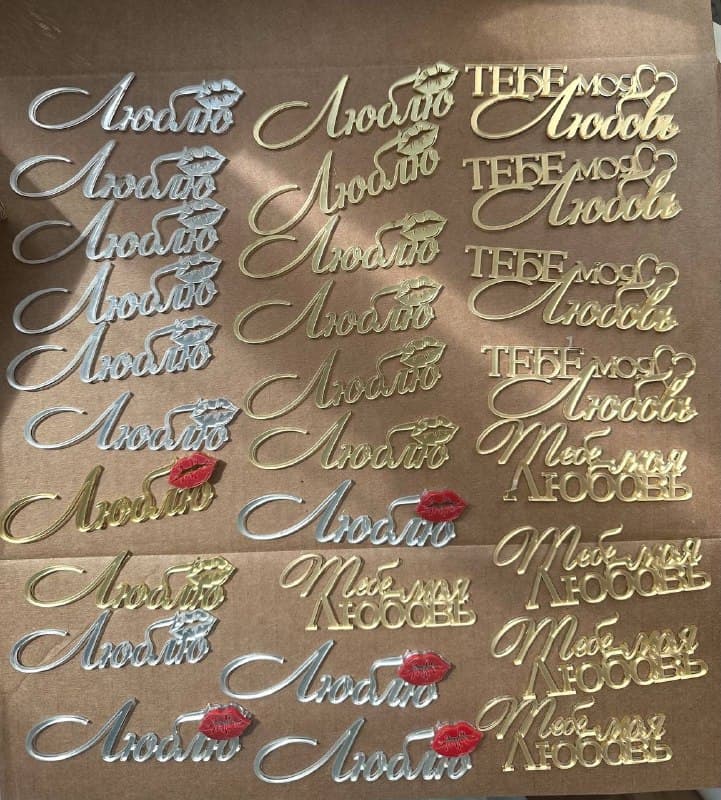 Люблю
Люблю
Люблю
Люблю
Люблю
Люблю
Люблю
Люблю
Люблю
Люблю
Люблю
Люблю
Люблю
Люблю
Люблю
Люблю
Люблю
Тебе моя
ЛЮБОВЬ
Люблю
Люблю
ТЕБЕ моя
Любовь
ТЕБЕ моя
Любовь
ТЕБЕ моя
Любовь
ТЕБЕ моя
Любовь
Тебе моя
ЛЮБОВЬ
Тебе моя
ЛЮБОВЬ
Тебе моя
ЛЮБОВЬ
Тебе моя
ЛЮБОВЬ